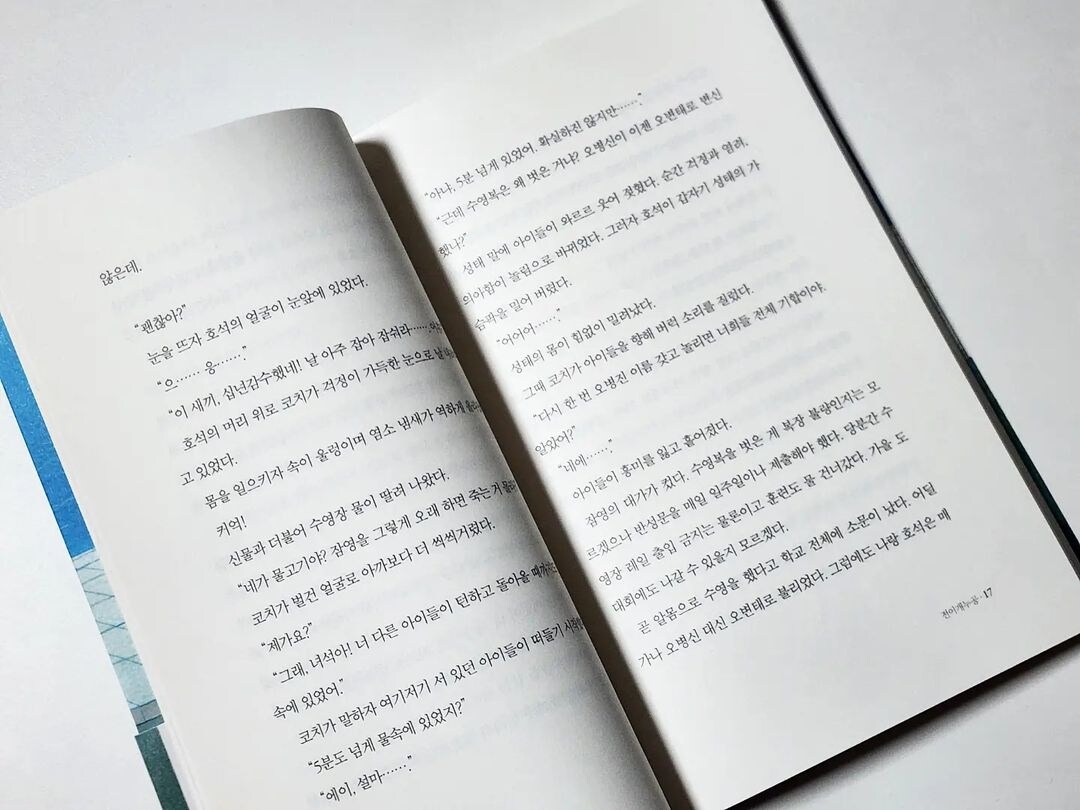 않은데.
“괜찮아?”
눈을 뜨자 호석의 얼굴이 눈앞에 있었다.
“으…… 응……”
“이 새끼, 십년감수했네! 날 아주 잡아 잡숴라……
호석의 머리 위로 코치가 걱정이 가득한 눈으로 날
고 있었다.
몸을 일으키자 속이 울렁이며 염소 냄새가 역하게
커억!
신물과 더불어 수영장 물이 딸려 나왔다.
“네가 물고기야? 잠영을 그렇게 오래 하면 죽는 거
코치가 벌건 얼굴로 아까보다 더 씩씩거렸다.
“제가요?”
“그래, 녀석아! 너 다른 아이들이 턴하고 돌아올 때까지
속에 있었어.”
코치가 말하자 여기저기 서 있던 아이들이 떠들기
“5분도 넘게 물속에 있었지?”
“에이, 설마……”
“아냐, 5분 넘게 있었어. 확실하진 않지만……”
“근데 수영복은 왜 벗은 거냐? 오병신이 이젠 오변태로 변신
했냐?”
성태 말에 아이들이 와르르 웃어 젖혔다. 순간 걱정과 염려,
의아함이 놀림으로 바뀌었다. 그러자 호석이 갑자기 성태의 가
슴팍을 밀어 버렸다.
“어어어……”
성태의 몸이 힘없이 밀려났다.
그때 코치가 아이들을 향해 버럭 소리를 질렀다.
“다시 한 번 오병진 이름 갖고 놀리면 너희들 전체 기합이야.
알았어?”
“네에……”
아이들이 흥미를 잃고 흩어졌다.
잠영의 대가가 컸다. 수영복을 벗은 게 복장 불량인지는 모
르겠으나 반성문을 매일 일주일이나 제출해야 했다. 당분간 수
영장 레일 출입 금지는 물론이고 훈련도 물 건너갔다. 가을 도
대회에도 나갈 수 있을지 모르겠다.
곧 알몸으로 수영을 했다고 학교 전체에 소문이 났다. 어딜
가나 오병신 대신 오변태로 불리었다. 그럼에도 나랑 호석은 매
17